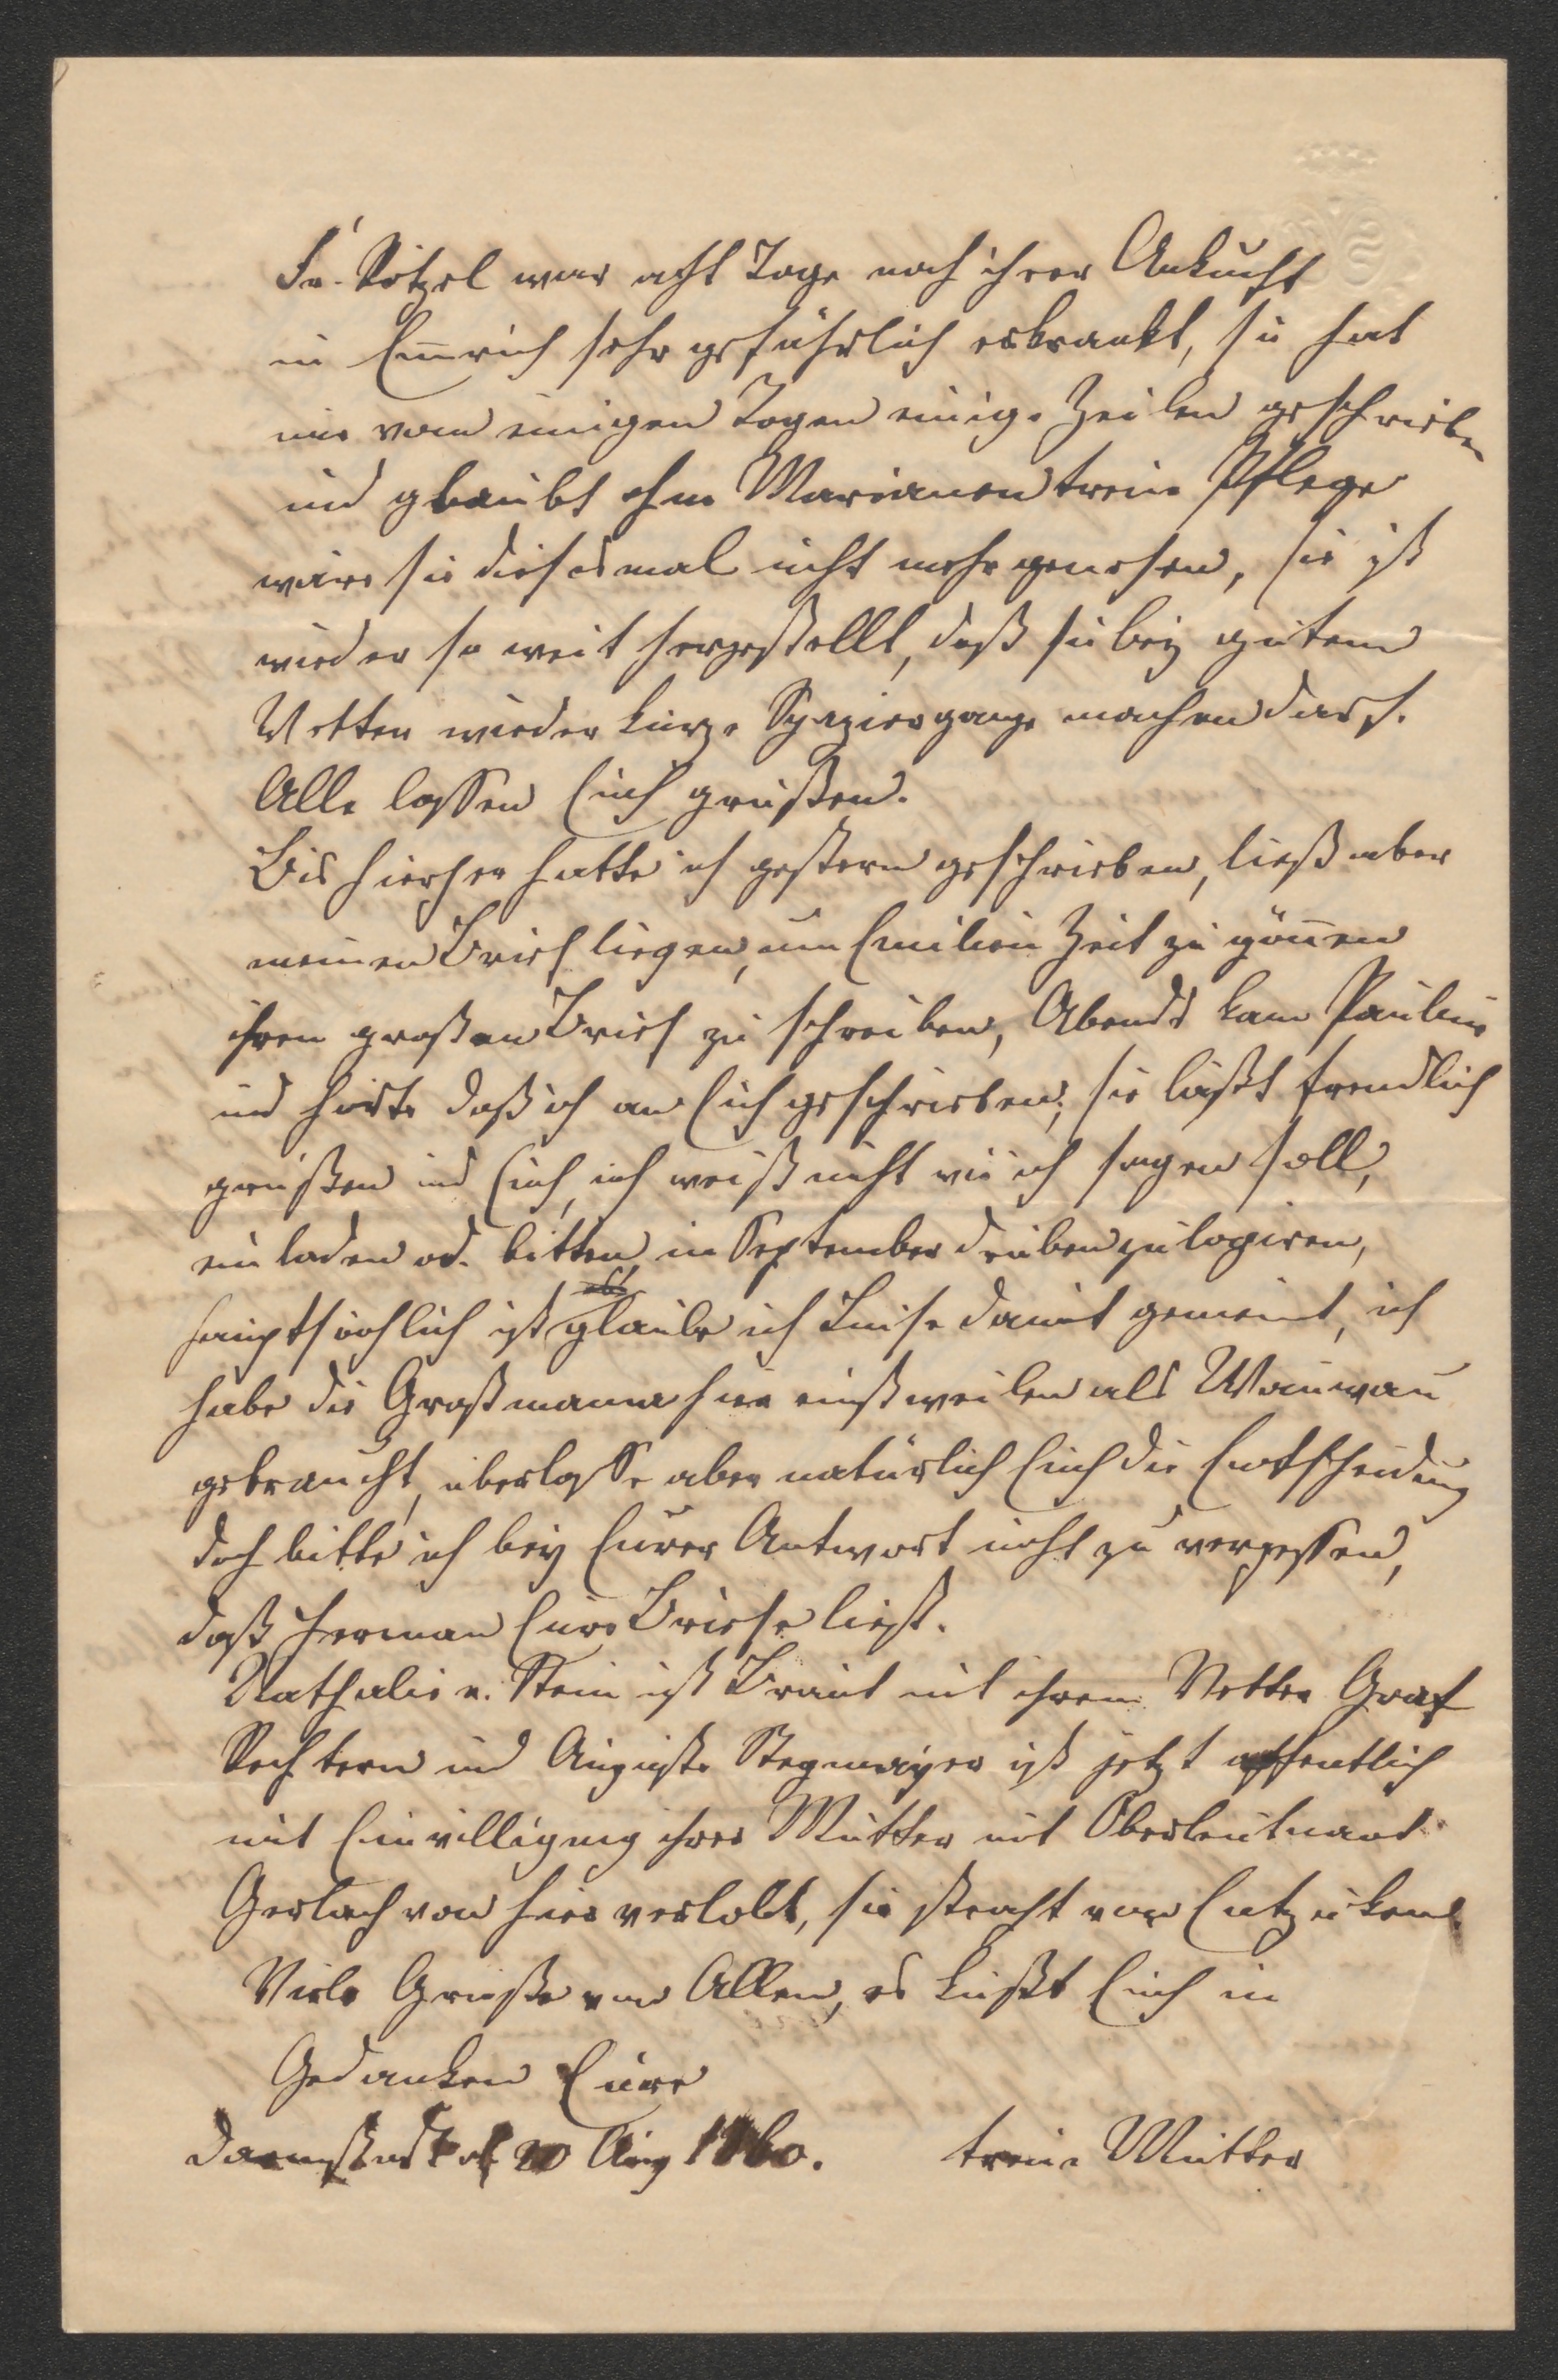 Fr. Rötzel war acht Tage nach ihrer Ankunft
in Emrich sehr gefährlich erkrankt, sie hat
mir vom einigen Tagen einige Zeilen geschrieben
und glaubt ohne Marianen treue Pflege
wäre sie diesesmal nicht mehr genesen, sie ist
wieder so weit hergestellt, daß sie bey gutem
Wetter wieder kurze Spaziergange machen darf.
Alle lassen Euch grüßen.
Bis hierher hatte ich gestern geschrieben, ließ aber
meinen Brief liegen, um Emilien Zeit zu gönnen
ihren großen Brief zu schreiben, Abends kam Pauline
und hörte daß ich an Euch geschrieben, sie läßt freundlich
grüßen und Euch, ich weiß nicht wie ich sagen soll,
einladen od. bitten, im September drüben zu logiren,
hauptsächlich ist glaube ich Luise damit gemeint, ich
habe die Großmama hier einstweilen als Wauwau
gebraucht, überlasse aber natürlich Euch die Entscheidung
doch bitte ich bey Eurer Antwort nicht zu vergessen,
daß Herman Eure Briefe ließt.
Nathalie v. Stein ist Braut mit ihrem Vetter Graf
Rechtern und Auguste Stegmayer ist jetzt öffentlich
mit Einwilligung ihrer Mutter mit Oberleutnant
Gerlach von hier verlobt, sie strahlt von Entzücken.
Viele Grüße von Allen, es küßt Euch in
Gedanken Eure
Darmstadt d. 20 Aug 1860. treue Mutter